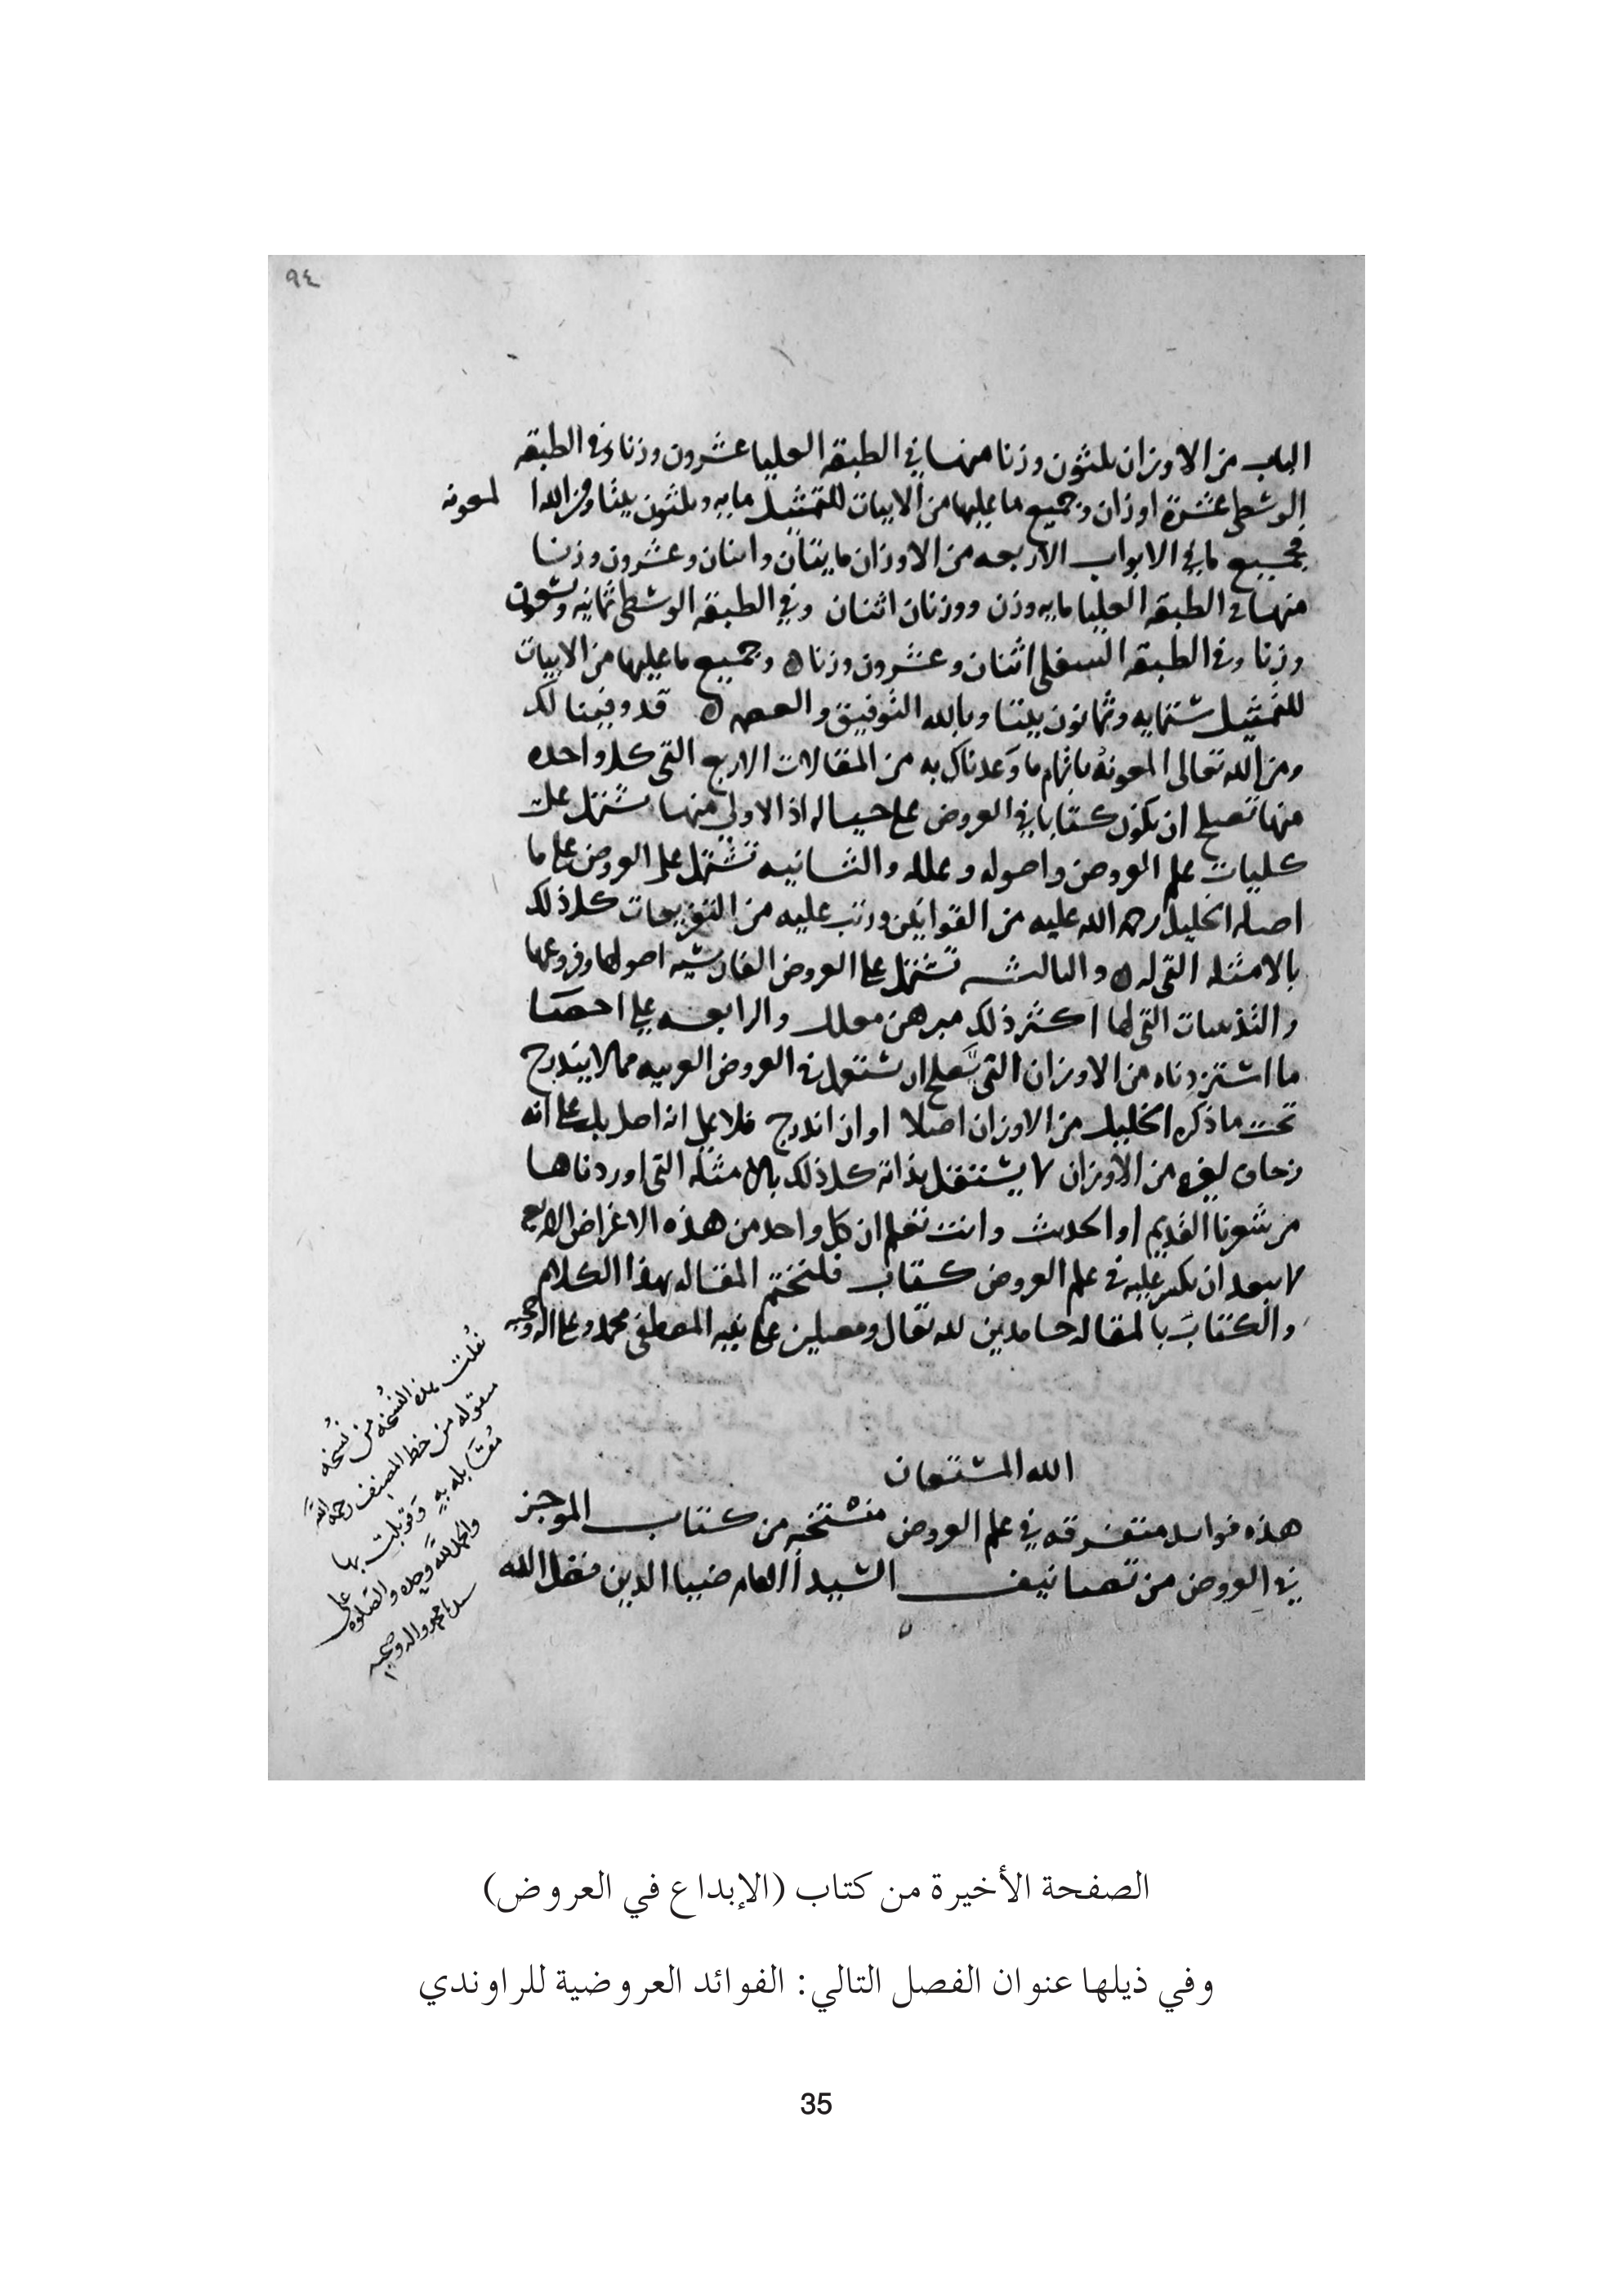 ٩٤
الباب من الاوزان ثلثون وزنا منها في الطبقه العليا عشرون وزنا وفي الطبقه
الوسطى عشرة اوزان وجميع ما عليها من الابيات للتمثيل مايه وثلثون بيتا ومن الله المعونه
فجميع ما في الابواب الاربعه من الاوزان مايتان واثنان وعشرون وزنا
منها في الطبقه العليا مايه وزن ووزنان اثنان وفي الطبقه الوسطى ثمانيه وتسعون
وزنا وفي الطبقه السفلى اثنان وعشرون وزنا ه وجميع ما عليها من الابيات
للتمثيل ستمايه وثمانون بيتا وبالله التوفيق والعصمه ه قد وفينا لك
ومن الله تعالى المعونة باتمام ما وعدناك به من المقالات الاربع التي كل واحده
منها تصلح ان يكون كتابا في العروض على حياله اذ الاولى منها تشتمل على
كليات علم العروض واصوله وعلله والثانيه تشتمل على العروض على ما
اصله الخليل رحمه الله عليه من القوانين ورتب عليه من التفريعات كل ذلك
بالامثله التي له ه والثالثه تشتمل على العروض الفارسيه اصولها وفروعها
والتذنيبات التي لها اكثر ذلك مبرهن معلل والرابعه على احصا
ما استزدناه من الاوزان التي تصلح ان تستعمل في العروض العربيه مما لا يندرج
تحت ما ذكره الخليل من الاوزان اصلا او ان اندرج فلا على انه اصل بل على انه
زحاف لغيره من الاوزان لا يستقل بذاته كل ذلك بالامثله التي اوردناها
من شعرنا القديم او الحديث وانت تعلم ان كل واحد من هذه الاغراض الاربع
لا يبعد ان يكسر عليه في علم العروض كتاب فلنختم المقاله بهذا الكلام
والكتاب بالمقاله حامدين لله تعالى ومصلين على نبيه المصطفى محمد وعلى اله وصحبه
نقلت هذه النسخه من نسخه
منقوله من خط المصنف رحمه الله
مقابله به وقوبلت بها
والحمد لله وحده والصلوه على
سيدنا محمد واله وصحبه
الله المستعان
هذه فوايد متفرقه في علم العروض منتسخه من كتاب الموجز
في العروض من تصانيف السيد الامام ضيا الدين فضل الله
الصفحة الأخيرة من كتاب (الإبداع في العروض)
وفي ذيلها عنوان الفصل التالي: الفوائد العروضية للراوندي
35